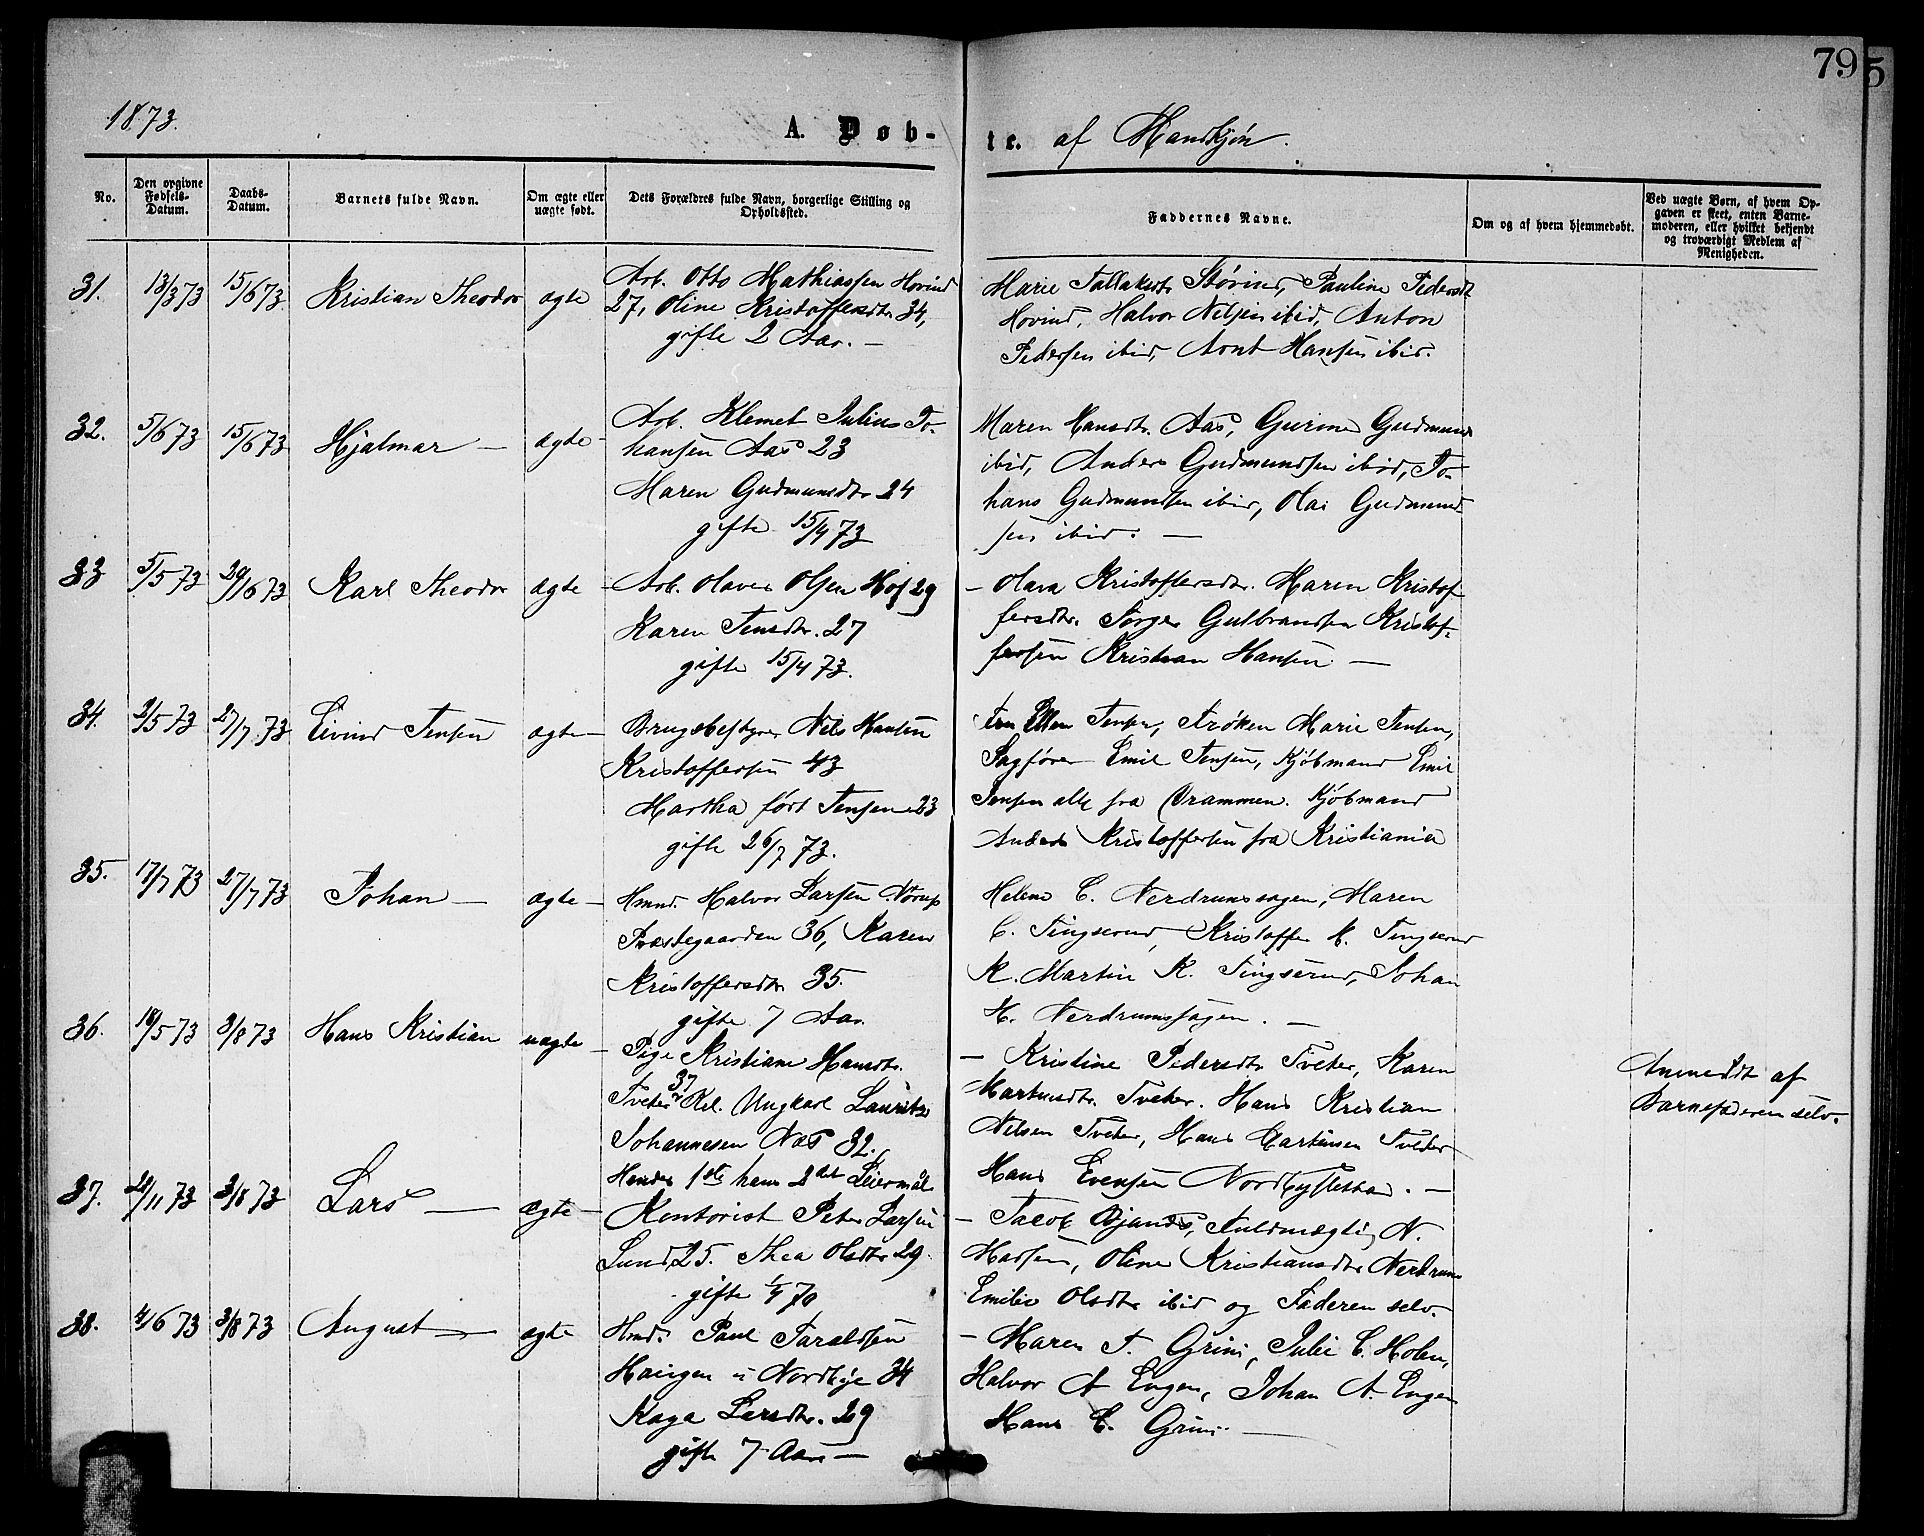 79
5
1873.
A. Døb-
te. af Mandkjøn.
No.
Den opgivne Fødsels-Datum.
Daabs-Datum.
Barnets fulde Navn.
Om ægte eller uægte født.
Dets Forældres fulde Navn, borgerlige Stilling og Opholdssted.
Faddernes Navne.
Om og af hvem hjemmedøbt.
Ved uægte Børn, af hvem Op-
gaven er skeet, enten Barne-
moderen, eller hvilket bekjendt
og troværdigt Medlem af
Menigheden.
31. 13/3 73 15/6 73. Kristian Theodor ægte
Arb. Otto Mathiassen Hovind
27, Oline Kristoffersdtr 34,
gifte 2 Aar. —
Marie Tallaksdtr Støvind, Pauline Pedersdt
Hovind, Halvor Nilsen ibid, Anton
Pedersen ibid, Arnt Hansen ibid.
32. 5/6 73 15/6 73 Hjalmar — ægte
Arb. Klemet Julius Jo-
hansen Aas 23
Maren Gudmundsdtr 24
gifte 15/4 73
Maren Hansdtr. Aas, Gurine Gudmunds
ibid, Anders Gudmundsen ibid, Jo-
hans Gudmundsen ibid, Olai Gudmund-
sen ibid. —
33 5/5 73 29/6 73 Karl Theodor ægte
Arb. Olaves Olsen Hof 29
Karen Jensdtr. 27
gifte 15/4 73.
— Olava Kristoffersdtr. Maren Kristof-
fersdtr. Jørgen Gulbrandsen Kristof-
fersen Kristian Hansen —
34. 2/5 73 27/7 73 Eivind Jensen ægte —
Brugsbestyrer Nils Hansen
Kristoffersen 43
Martha født Jensen 23
gifte 26/7 73.
Fru Ellen Jensen, Frøken Marie Jensen,
Sagfører Emil Jensen, Kjøbmand Emil
Jensen alle fra Drammen. Kjøbmand
Anders Kristoffersen fra Kristiania
35. 17/7 73 27/7 73 Johan — ægte —
Hmnd. Halvor Larsen Nørup
Præstegaarden 36, Karen
Kristoffersdtr 35.
gifte 7 Aar.
Helene C. Nerdrumsagen, Maren
C. Tingserud, Kristoffer K. Tingserud
K. Martin K. Tingserud, Johan
H. Nerdrumsagen. —
36. 18/5 73 3/8 73 Hans Kristian uægte —
Pige Kristiane Hansdtr.
Tveter 37 Ungkarl Lauritz
Johannesen Næs 32.
Hendes 1ste hans 2det Leiermål
— Kristine Pedersdtr Tveter, Karen
Martinsdtr. Tveter. Hans Kristian
Nilsen Tveter, Hans Martinsen Tveter
Hans Evensen Nordbyflettan. —
Anmeldt af
Barnefaderen selv.
37. 29/11 73 3/8 73 Lars — ægte —
Kontorist Peter Larsen
Lund 25. Thea Olsdtr 29.
gifte 1/4 70
— Jacob Bjanes, Fuldmægtig N.
Madsen, Oline Kristiansdtr Nerdrum
Emilie Olsdtr ibid og Faderen selv.
38. 4/6 73 3/8 73 August — ægte
Hmd. Paul Taraldsen
Haugen u Nordbye 34
Kaya Larsdtr. 29
gifte 7 Aar —
— Maren T. Grini, Julie C. Holm,
Halvor A Engen, Johan A. Engen
Hans C. Grini. —